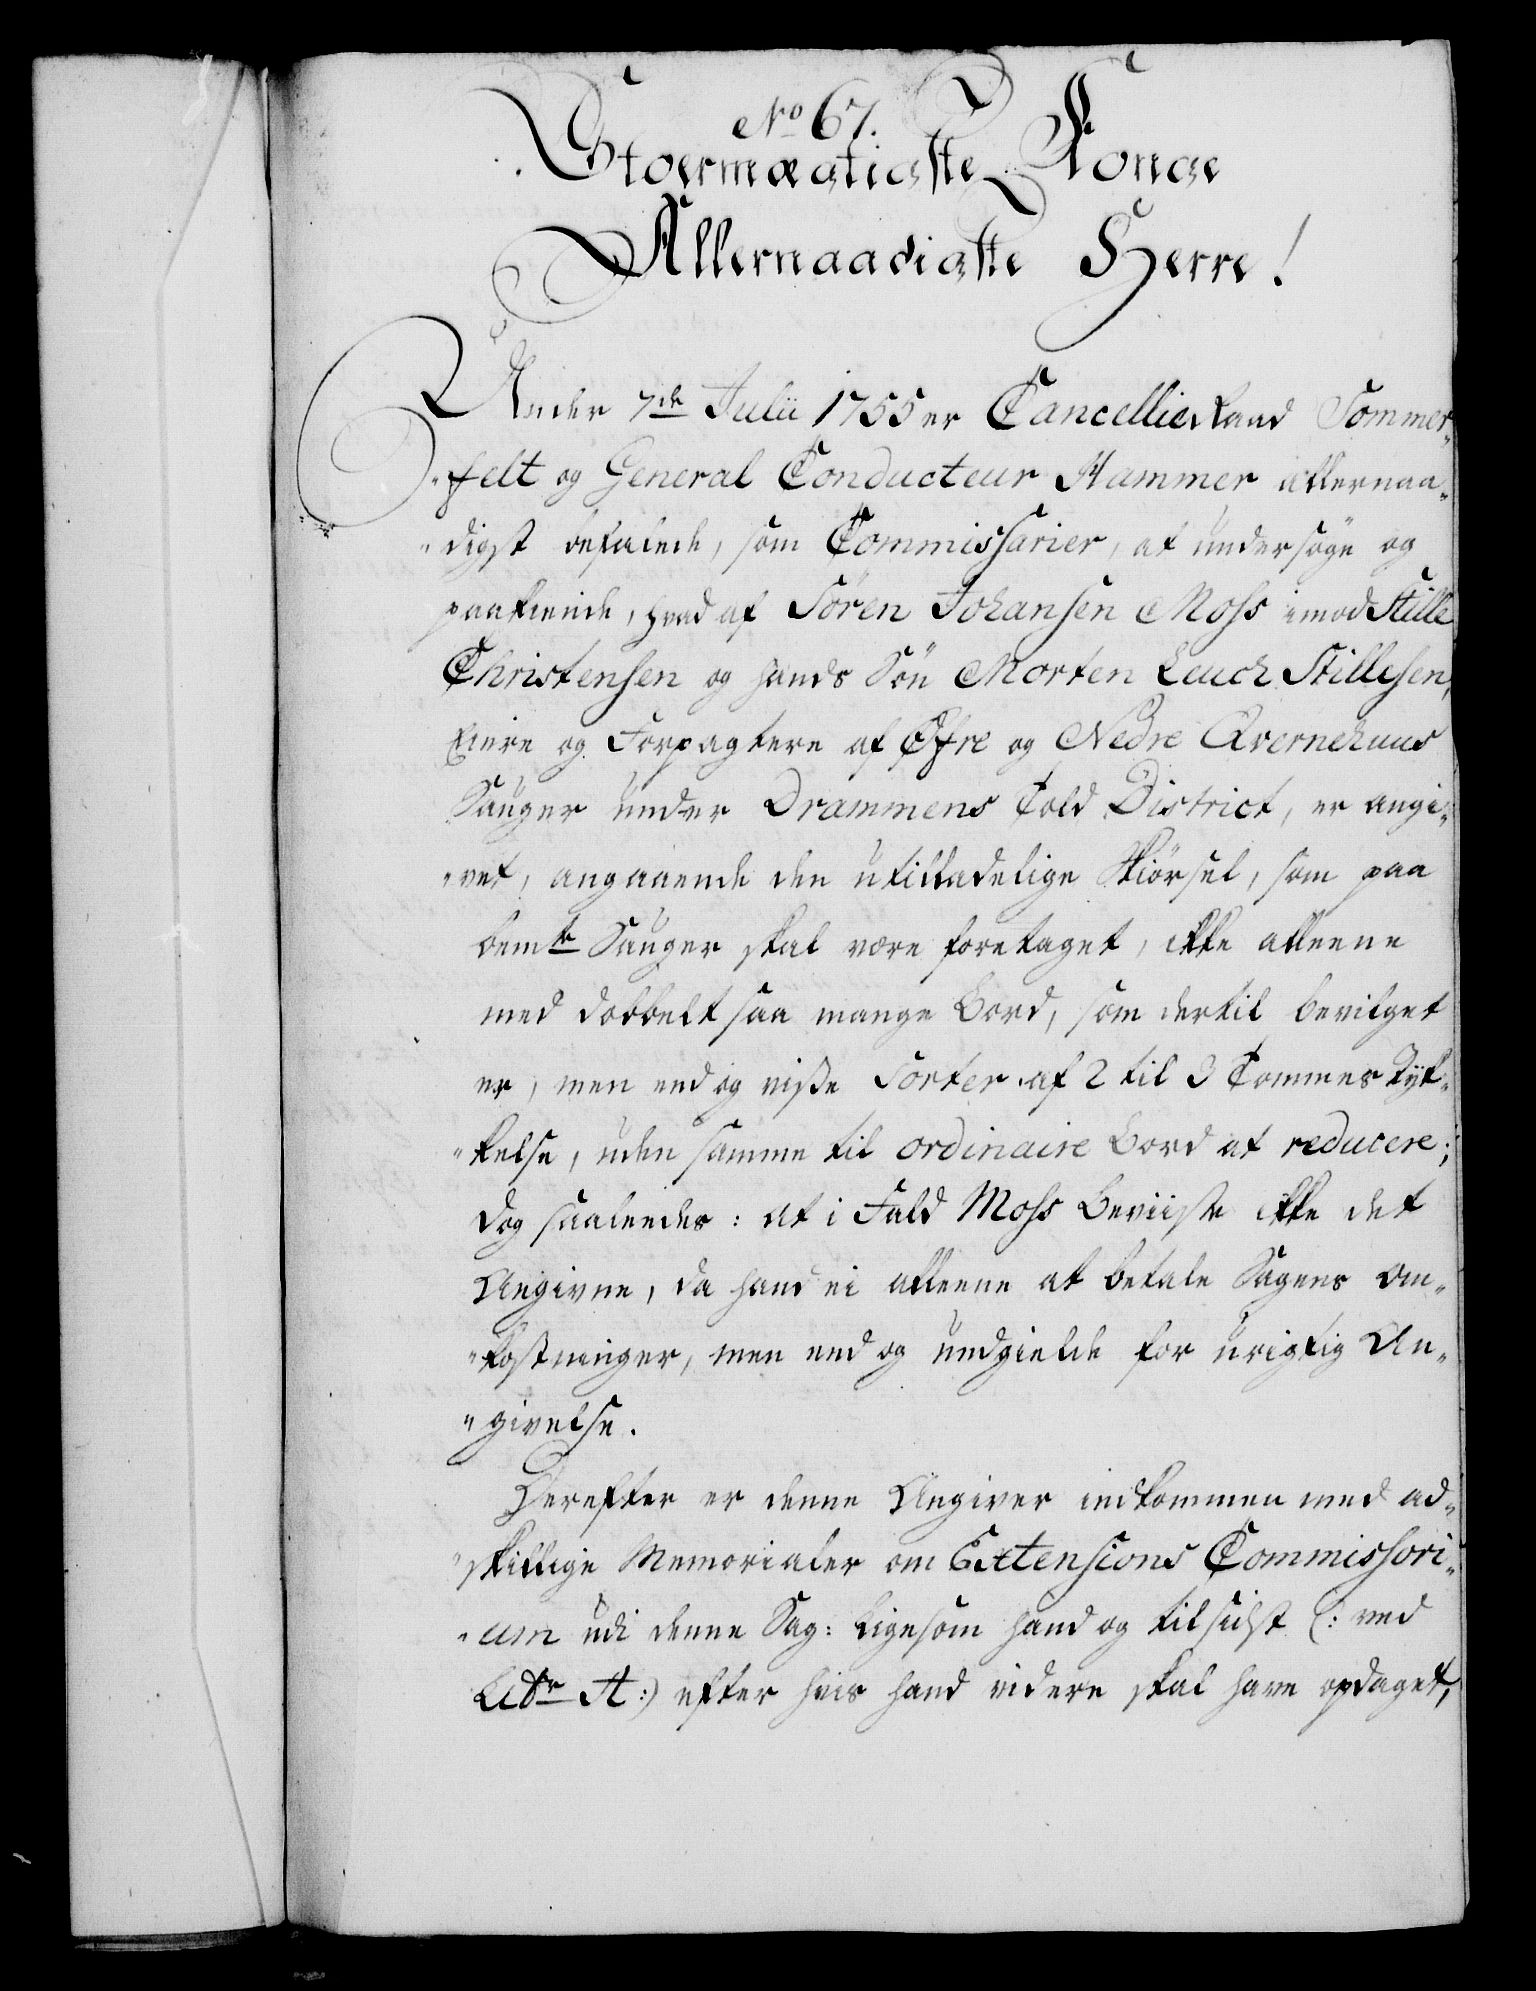 No 67.
Stoermægtigste Konge
Allernaadigste Herre!
Under 7de Julii 1755 er CancellieRaad Sommer„
„felt og General Conducteur Hammer allernaa„
„digst befalede, som Commissarier, at undersøge og
paakiende, hvad af Sören Johansen Moss imod Stille
Christensen og hands Søn Morten Leuch Stillesen,
Eiere og Forpagtere af Øfre og Nedre Qvernehuus
Sauger under Drammens Told District, er angi„
„vet, angaaende den utilladelige Skiørsel, som paa
bemte Sauger skal være foretaget, ikke alleene
med dobbelt saa mange Bord, som dertil bevilget
er, men endog visse Sorter af 2 til 3 Tommes Tyk„
„kelse, uden samme til ordinaire Bord at reducere;
dog saaleedes: at i Fald Moss beviiste ikke det
Angivne, da hand ei alleene at betale Sagens Om„
„kostninger, men endog undgielde for urigtig An„
„givelse.
Derefter er denne Angiver indkommen med ad„
„skillige Memorialer om Extensions Commissori„
„um udi denne Sag: Ligesom hand og tilsidst (: ved
Litr A:) efter hvis hand videre skal have opdaget,